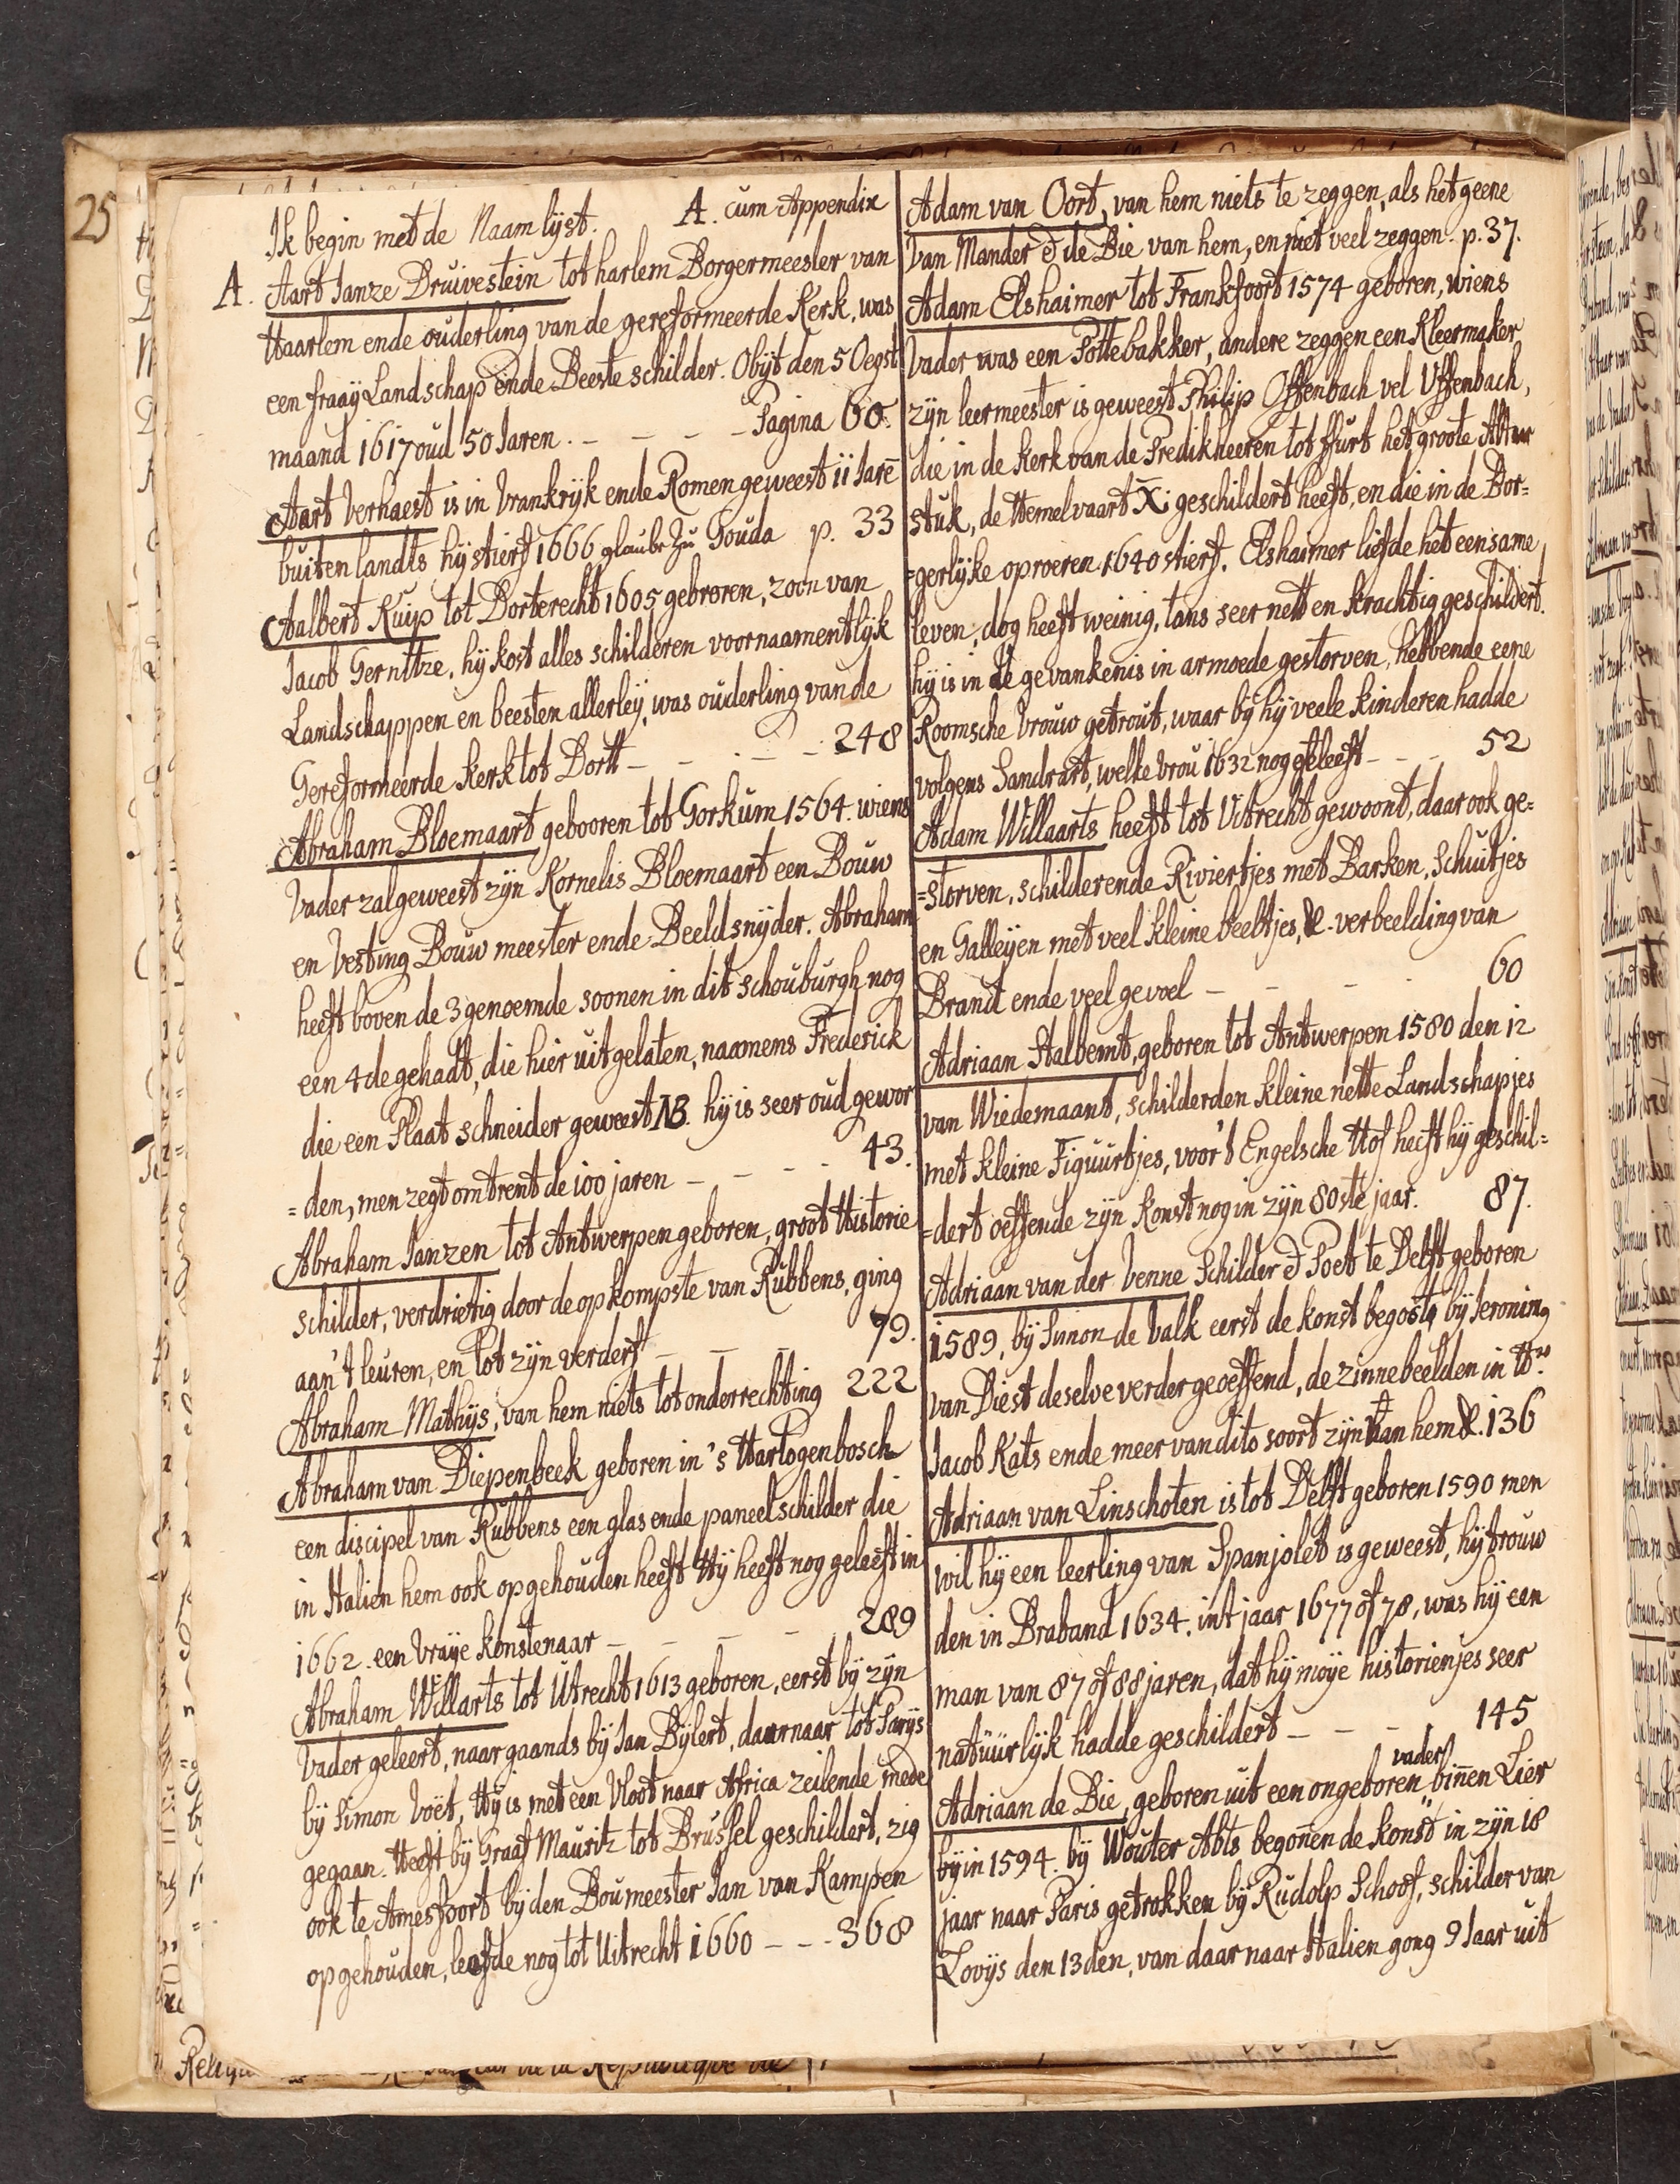 25
Ik begin met de Naam lÿst. A. cum Appendix
A. Aart Janze Druivestein tot harlem Borgermeester van
Haarlem ende ouderling van de gereformeerde Kerk, was
een fraaÿ Landschap ende Beeste schilder. Obÿt den 5 Oegst
maand 1617 oud 50 Jaren. – – – – Pagina 60.
Aart Verhaest is in Vrankrÿk ende Romen geweest ii Jarē
buiten landts hÿ stierf 1666 glaube zu Gouda p. 33
Aalbert Kuip tot Dorterecht 1605 gebroren, zoon van
Jacob Gernitze. hÿ kost alles schilderen voornaamentlÿk
Landschappen en beesten allerleÿ, was ouderling van de
Gereformeerde Kerk tot Dortt – – – – 248
Abraham Bloemaart gebooren tot Gorkum 1564. wiens
Vader zal geweest zÿn Kornelis Bloemaart een Bouw
en Vesting Bouw meester ende Beeldsnÿder. Abraham
heeft boven de 3 genoemde soonen in dit schouburgh nog
een 4de gehadt, die hier uitgelaten, naamens Frederick
die een Plaat schneider geweest NB. hÿ is seer oud gewor
=den, men zegt omtrent de 100 jaren – – – 43.
Abraham Janzen tot Antwerpen geboren, groot Historie
schilder, verdrietig door de opkompste van Rubbens, ging
aan't leuren, en tot zÿn verderf – – – 79.
Abraham Mathÿs, van hem niets tot onderrechting 222
Abraham van Diepenbeek geboren in 's Hartogenbosch
een discipel van Rubbens een glas ende paneelschilder die
in Italien hem ook opgehouden heeft Hÿ heeft nog geleeft in
1662. een Vraÿe konstenaar – – – – 289
Abraham Willarts tot Utrecht 1613 geboren, eerst bÿ zÿn
Vader geleert, naargaands bÿ Jan Bÿlert, daarnaar tot Parÿs
bÿ Simon Voët, Hÿ is met een Vloot naar Africa zeilende mede
gegaan. Heeft bÿ Graaf Mauritz tot Brussel geschildert, zig
ook te Amesfoort bÿ den Boumeester Jan van Kampen
opgehouden, leefde nog tot Uitrecht 1660 – – – 368
Adam van Oort, van hem niets te zeggen, als het geene
Van Mander & de Bie van hem, en niet veel zeggen. p. 37.
Adam Elshaimer tot Frankfoort 1574 geboren, wiens
Vader was een Pottebakker, andere zeggen een Kleermaker
zÿn leermeester is geweest Philip Offenbach vel Uffenbach,
die in de kerk van de Predikheeren tot ffurt het groote Altaar
stuk, de Hemelvaart Xi geschildert heeft, en die in de Bor=
=gerlÿke oproeren 1640 stierf. Elshaimer liefde het eensame
leven, dog heeft weinig, tans seer nett en krachtig geschildert.
hÿ is in de gevankenis in armoede gestorven, hebbende eene
Roomsche Vrouw getrout, waar bÿ hÿ veele kinderen hadde
volgens Sandrart, welke Vrou 1632 nog geleeft – – – 52
Adam Willaarts heeft tot Vitrecht gewoont, daar ook ge=
=storven, schilderende Riviertjes met Barken, Schuitjes
en Galleÿen met veel kleine beeltjes, &. verbeelding van
Brand ende veel gevoel – – – 60
Adriaan Stalbemt, geboren tot Antwerpen 1580 den 12
van Wiedemaant, schilderden kleine nette Landschapjes
met kleine Figuurtjes, voor't Engelsche Hof heeft hÿ geschil=
=dert oeffende zÿn Konst nog in zÿn 80ste jaar. 87.
Adriaan van der Venne Schilder & Poet te Delft geboren
1589, bÿ Simon de Valk eerst de konst begost, bÿ Jeroning
van Diest deselve verder geoeffend, de zinnebeelden in Hrs
Jacob Kats ende meer van dito soort zÿn van hem &. 136
Adriaan van Linschoten is tot Delft geboren 1590 men
wil hÿ een leerling van Spanjolet is geweest, hÿ trouw
den in Braband 1634. int jaar 1677 of 78, was hÿ een
man van 87 of 88 jaren, dat hÿ moÿe historienjes seer
natüürlÿk hadde geschildert – – – – 145
Adriaan de Bie, geboren uit een ongeboren vader binnen Lier
bÿ in 1594. bÿ Wouter Abts begonen de konst in zÿn 18
jaar naar Paris getrokken bÿ Rudolp Schoof, schilder van
Lovÿs den 13den, van daar naar Italien gong 9 Jaar uit